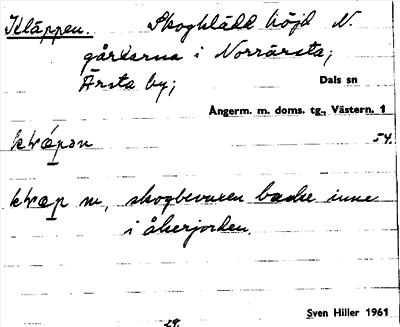 Kläppen. Skogklädd höjd N.
gårdarna i Norrårsta;
Årsta by; Dals sn
Ångerm. m. doms. tg., Västern. 1
54.
m, skogbevuxen backe inne
i åkerjorden.
Sven Hiller 1961
29.